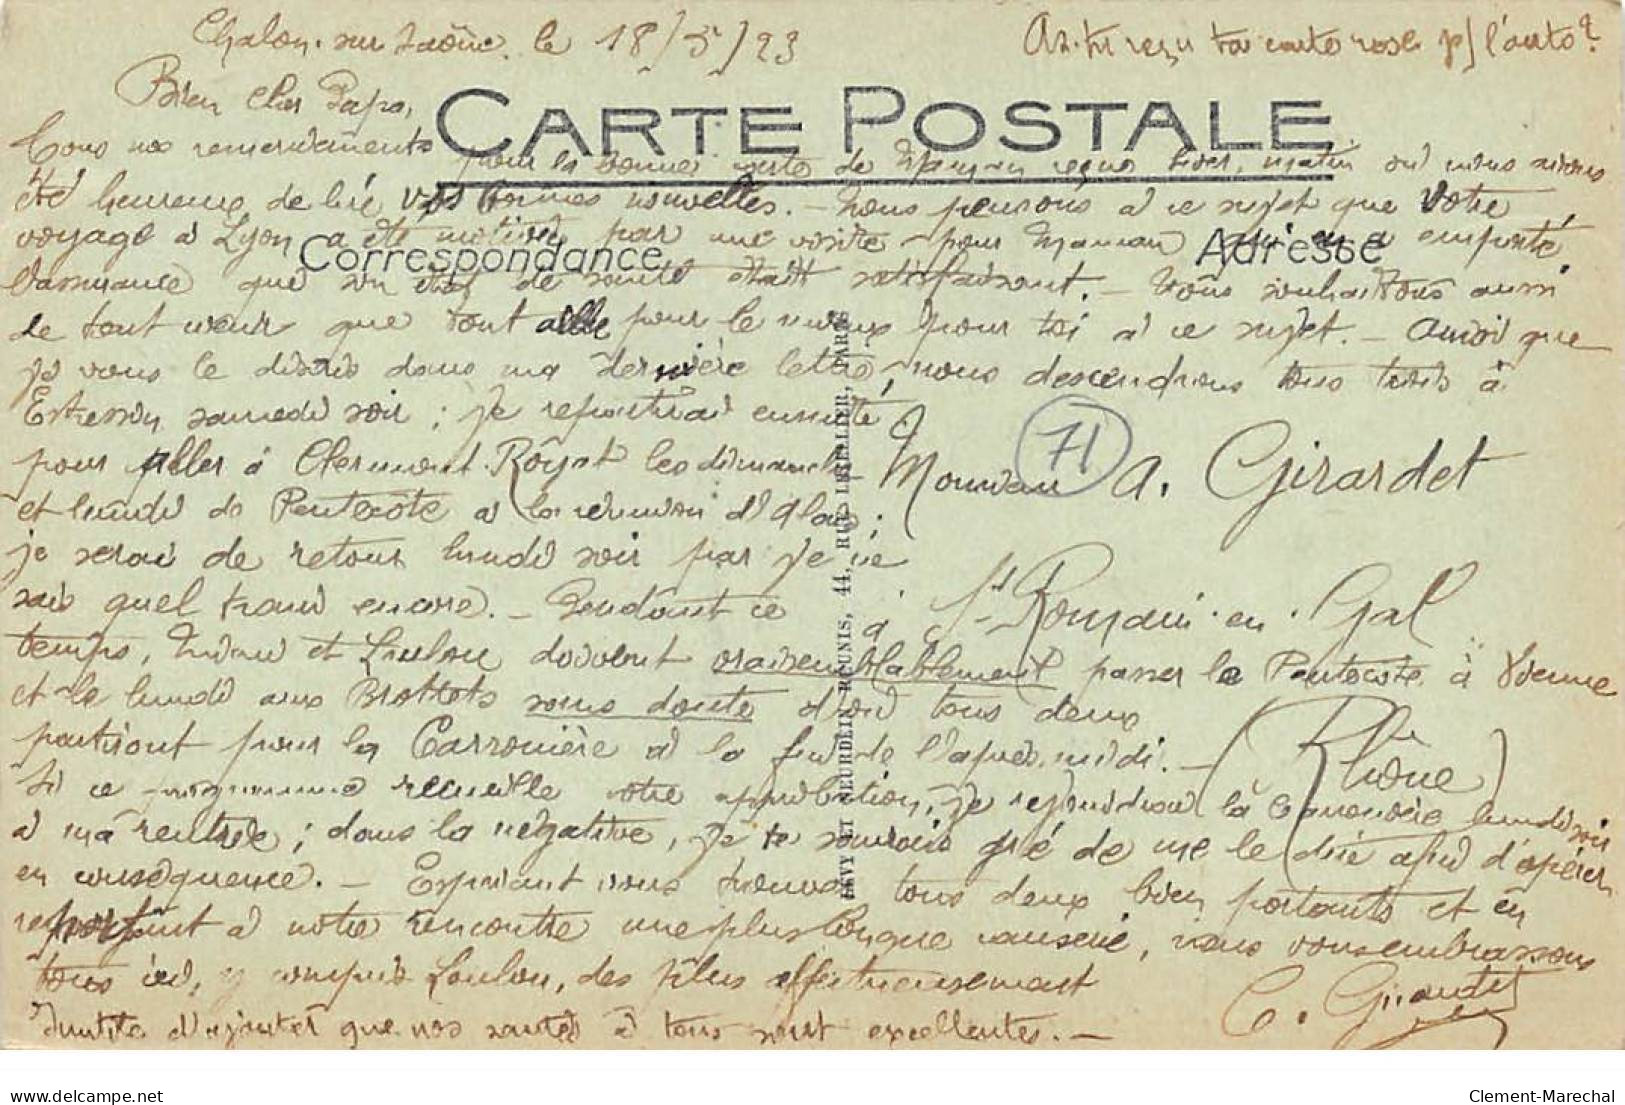 Chalon-sur-Saône, le 18/5/23
As-tu reçu ta carte rose p/ l'auto?
Bien cher Papa,
CARTE POSTALE
Tous nos remerciements pour la bonne carte de Maman reçue hier matin où nous avons
été heureux de lire vos bonnes nouvelles. – Nous pensons à ce sujet que votre
voyage à Lyon a été motivé par une visite pour Maman qui en a emporté
Correspondance
Adresse
l'assurance que son état de santé était satisfaisant. – Nous souhaitons aussi
de tout cœur que tout aille pour le mieux pour toi à ce sujet. – Ainsi que
je vous le disais dans ma dernière lettre, nous descendrons tous trois à
Estressin samedi soir; je repartirai ensuite
pour aller à Clermont-Royat les dimanche
et lundi de Pentecôte à la réunion
je serai de retour lundi soir par je ne
sais quel train encore. – Pendant ce
temps, et Loulou doivent vraisemblablement passer la Pentecôte à Vienne
et le lundi aux Brotteaux sans doute d'où tous deux
partiront pour la Carronière à la fin de l'après-midi. –
Si ce programme recueille votre approbation, je rejoindrai la Carronière lundi soir
à ma rentrée; dans la négative, je te saurais gré de me le dire afin d'opérer
en conséquence. – Espérant vous trouver tous deux bien portants et en
reportant à notre rencontre une plus longue causerie, nous vous embrassons
tous ici, y compris Loulou, des plus affectueusement
C. Girardet
Inutile d'ajouter que nos santés à tous sont excellentes. –
Monsieur A. Girardet
à St-Romain-en-Gal
(Rhône)
71
LEVY ET NEURDEIN RÉUNIS, 44, RUE LETELLIER, PARIS
delcampe.net
Clement-Marechal